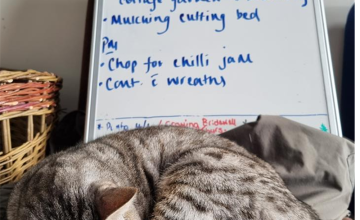 cottage garden
• Mulching cutting bed
PM
• Chop for chilli jam
• Cont. c̄ wreaths
Growing